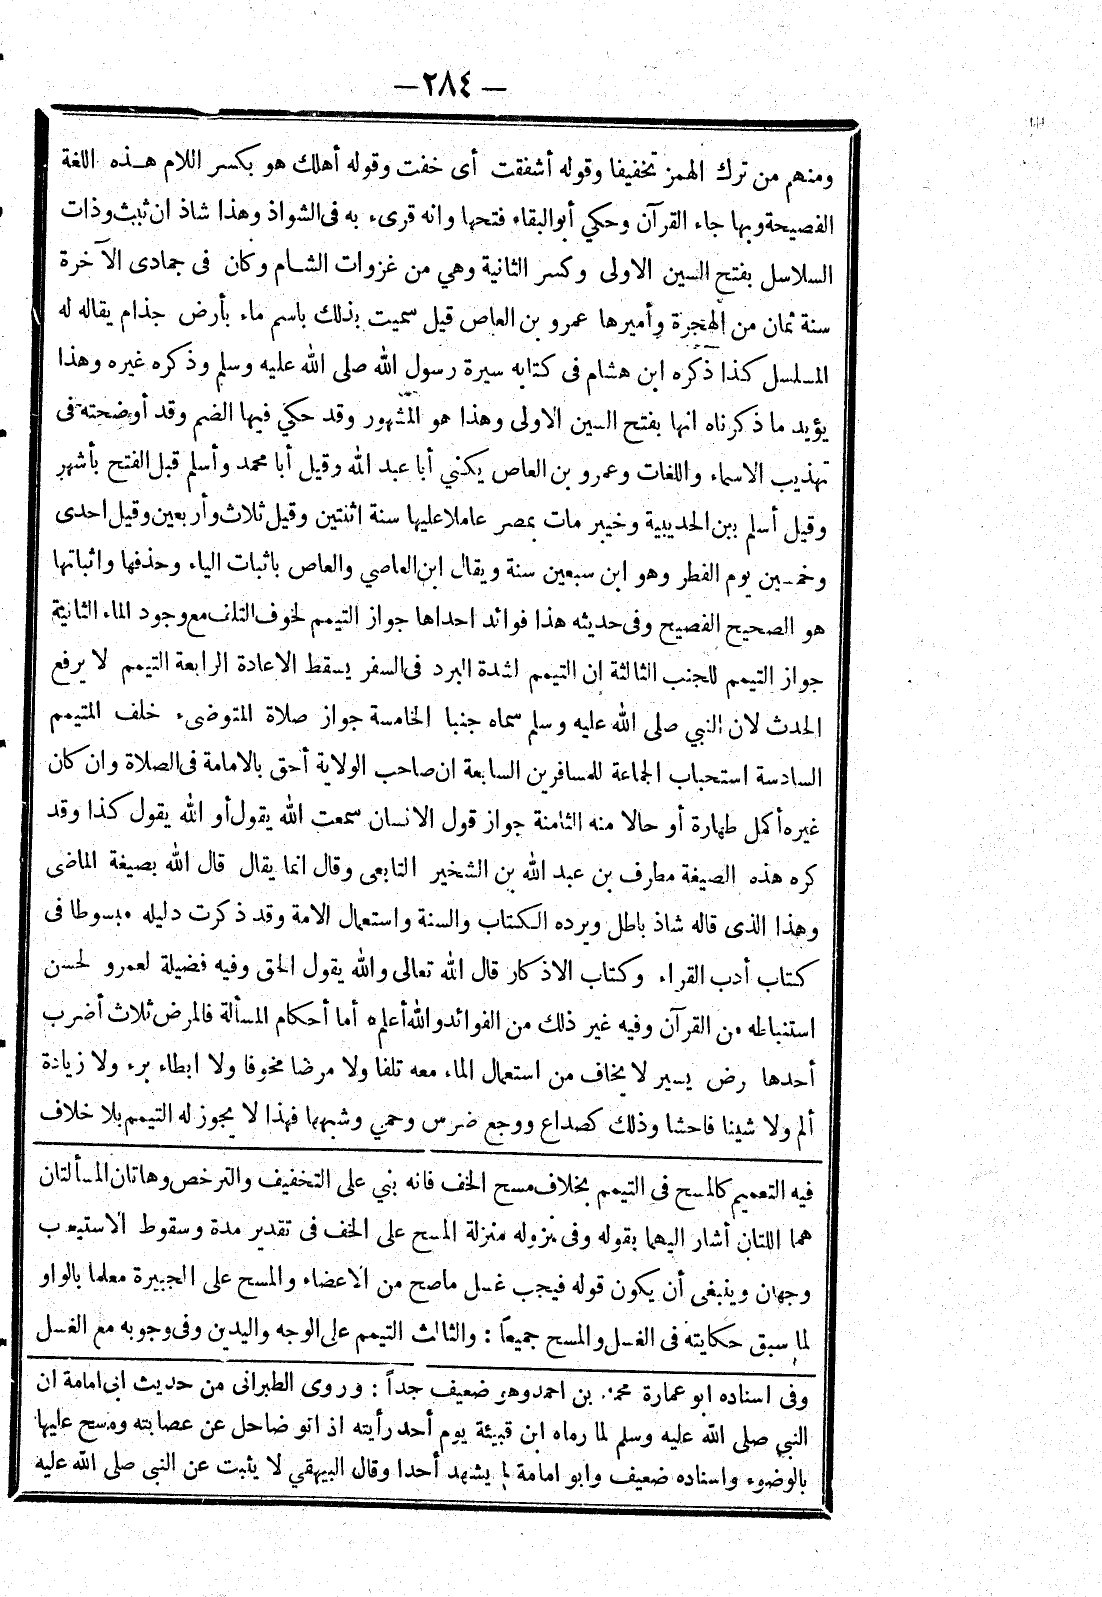 — ٢٨٤ —
ومنهم من ترك الهمز تخفيفا وقوله أشفقت أى خفت وقوله أهلك هو بكسر اللام هـذه اللغة
الفصيحة وبها جاء القرآن وحكي أبو البقاء فتحها وانه قرىء به فى الشواذ وهذا شاذ ان ثبت وذات
السلاسل بفتح السين الاولى وكسر الثانية وهي من غزوات الشـام وكان فى جمادى الآخرة
سنة ثمان من الهجرة وأميرها عمرو بن العاص قيل سميت بذلك باسم ماء بأرض جذام يقاله له
المسلسل كذا ذكره ابن هشام فى كتابه سيرة رسول الله صلى الله عليه وسلم وذكره غيره وهذا
يؤيد ما ذكرناه انها بفتح السين الاولى وهذا هو المشهور وقد حكي فيها الضم وقد أوضحته فى
تهذيب الاسماء واللغات وعمرو بن العاص يكني أبا عبد الله وقيل أبا محمد وأسلم قبل الفتح بأشهر
وقيل أسلم بين الحديبية وخيبر مات بمصر عاملا عليها سنة اثنتين وقيل ثلاث وأربعين وقيل احدى
وخمسين يوم الفطر وهو ابن سبعين سنة ويقال ابن العاصي والعاص باثبات الياء وحذفها واثباتها
هو الصحيح الفصيح وفى حديثه هذا فوائد احداها جواز التيمم لخوف التلف مع وجود الماء الثانية
جواز التيمم للجنب الثالثة ان التيمم لشدة البرد فى السفر يسقط الاعادة الرابعة التيمم لا يرفع
الحدث لان النبي صلى الله عليه وسلم سماه جنبا الخامسة جواز صلاة المتوضىء خلف المتيمم
السادسة استحباب الجماعة للمسافرين السابعة ان صاحب الولاية أحق بالامامة فى الصلاة وان كان
غيره أكمل طهارة أو حالا منه الثامنة جواز قول الانسان سمعت الله يقول أو الله يقول كذا وقد
كره هذه الصيغة مطرف بن عبد الله بن الشخير التابعى وقال انما يقال قال الله بصيغة الماضى
وهذا الذى قاله شاذ باطل ويرده الكتاب والسنة واستعمال الامة وقد ذكرت دليله مبسوطا فى
كتاب أدب القراء وكتاب الاذكار قال الله تعالى والله يقول الحق وفيه فضيلة لعمرو لحسن
استنباطه من القرآن وفيه غير ذلك من الفوائد والله أعلم ه أما أحكام المسألة فالمرض ثلاث أضرب
أحدها رض يسير لا يخاف من استعمال الماء معه تلفا ولا مرضا مخوفا ولا ابطاء برء ولا زيادة
ألم ولا شينا فاحشا وذلك كصداع ووجع ضرس وحمي وشبهها فهذا لا يجوز له التيمم بلا خلاف
فيه التعميم كالمسح فى التيمم بخلاف مسح الخف فانه بني على التخفيف والترخص وهاتان المسألتان
هما اللتان أشار اليهما بقوله وفى نزوله منزلة المسح على الخف فى تقدير مدة وسقوط الاستيعاب
وجهان وينبغى أن يكون قوله فيجب غسل ماصح من الاعضاء والمسح على الجبيرة معلما بالواو
لما سبق حكايته فى الغسل والمسح جميعاً : والثالث التيمم على الوجه واليدين وفى وجوبه مع الغسل
وفى اسناده ابو عمارة محمد بن احمد وهو ضعيف جداً : وروى الطبرانى من حديث ابى امامة ان
النبي صلى الله عليه وسلم لما رماه ابن قميئة يوم أحد رأيته اذ اتو ضاحل عن عصابته ومسح عليها
بالوضوء واسناده ضعيف وابو امامة لم يشهد أحدا وقال البيهقي لا يثبت عن النبى صلى الله عليه